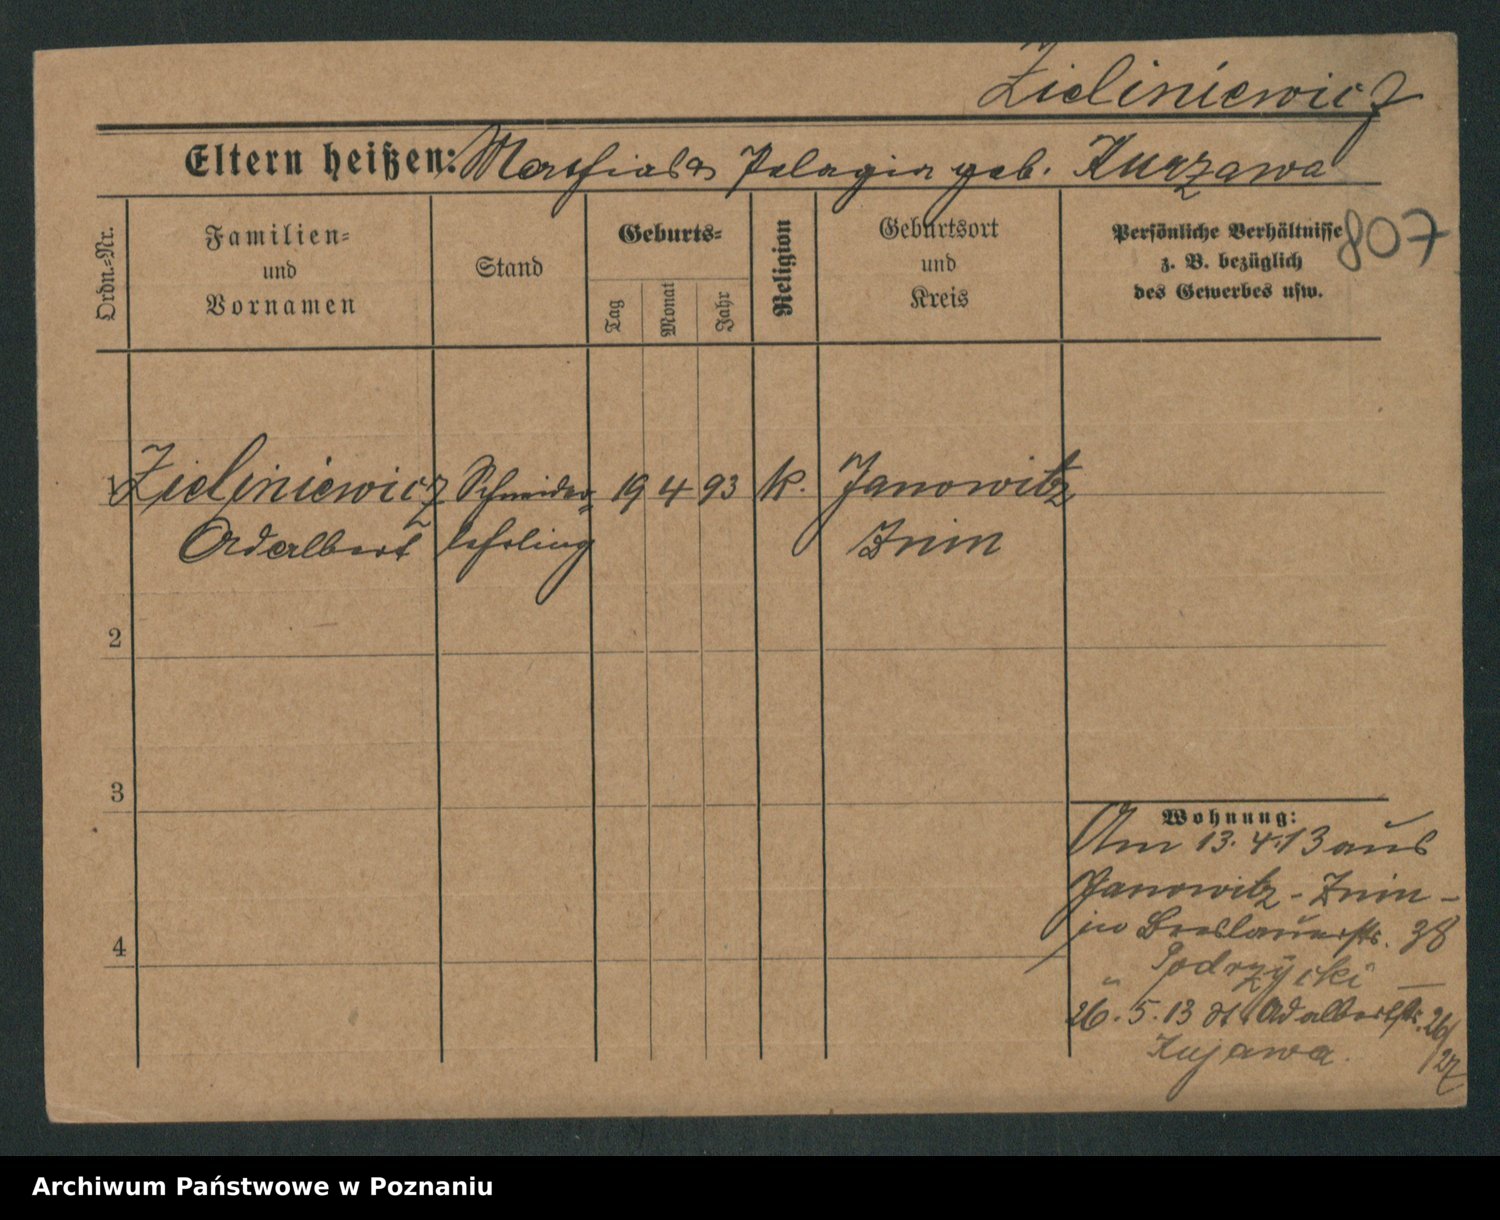 Zieliniewicz
Eltern heißen: Mathias Pelagia geb. Kurzawa
807
Ordn.-Nr.
Familien-
und
Vornamen
Stand
Geburts-
Tag
Monat
Jahr
Religion
Geburtsort
und
Kreis
Persönliche Verhältnisse
z. B. bezüglich
des Gewerbes usw.
1 Zieliniewicz Schneider- 19 4 93 k. Janowitz
Adalbert lehrling Znin
2
3
4
Wohnung:
Am 13.4.13 aus
Janowitz - Znin -
in Breslauerstr. 38
" Podrzycki —
26.5.13 St. Adalbertstr. 26/27
Kujawa.
Archiwum Państwowe w Poznaniu